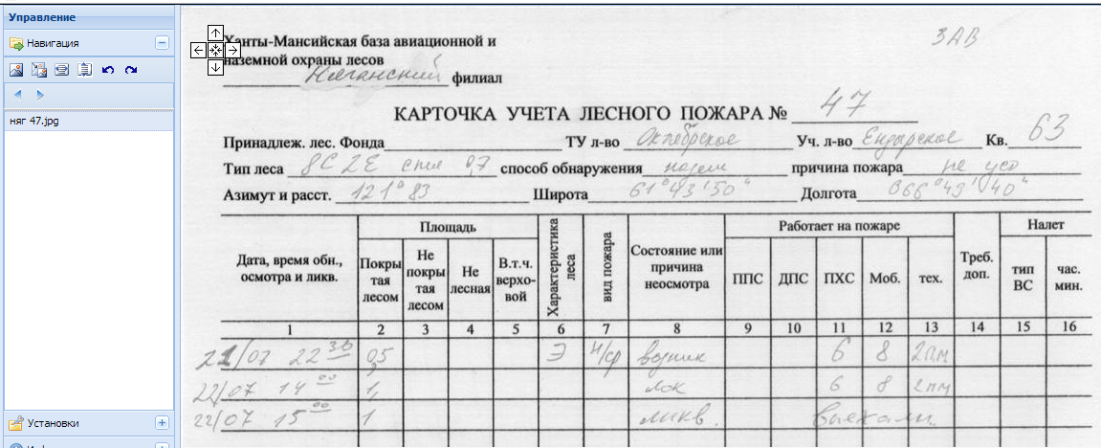 Управление
Навигация
няг 47.jpg
Установки
Ханты-Мансийская база авиационной и
наземной охраны лесов
Няганский филиал
ЗАВ
КАРТОЧКА УЧЕТА ЛЕСНОГО ПОЖАРА № 47
Принадлеж. лес. Фонда ТУ л-во Октябрьское Уч. л-во Ендырское Кв. 63
Тип леса 8С 2Е спел 0,7 способ обнаружения назем причина пожара не уст
Азимут и расст. 121° 83 Широта 61°43'50" Долгота 066°49'40"
Дата, время обн., осмотра и ликв.
Площадь
Покрытая лесом
Не покрытая лесом
Не лесная
В.т.ч. верховой
Характеристика леса
вид пожара
Состояние или причина неосмотра
Работает на пожаре
ППС ДПС ПХС Моб. тех.
Треб. доп.
Налет
тип ВС
час. мин.
1 2 3 4 5 6 7 8 9 10 11 12 13 14 15 16
21/07 22 30 0,5 Э н/ср возник 6 8 2пм
22/07 14 00 1, лок 6 8 2пм
22/07 15 00 1 ликв. выехали